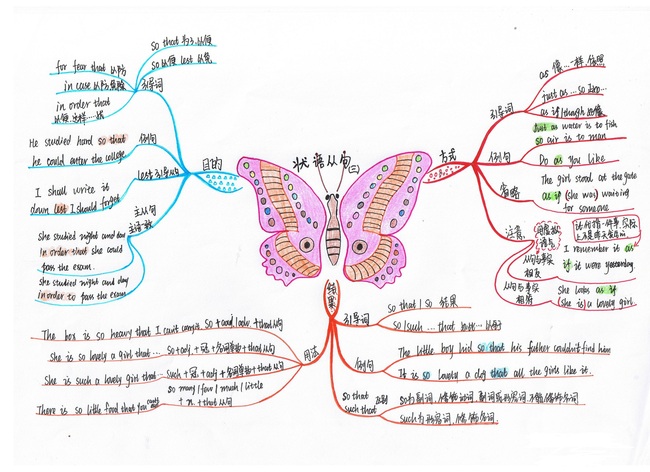 状语从句(三)
目的
引导词
so that 为了,以便
so 以便 lest 以免
for fear that 以防
in case 以防
in order that
例句
He studied hard so that
he could enter the college
lest 引导从句
I shall write it
down lest I should forget
主从句
She studied night and day
in order that she could
pass the exam.
She studied night and day
in order to pass the exam
方式
引导词
as 像…一样
just as … so
as if/though
例句
Just as water is to fish
so air is to man
Do as You like
省略
The girl stood at the gate
as if (she was) waiting
for someone
注意
从句与事实
相反
I remember it as
if it were yesterday.
从句与事实
相符
She looks as if
(she is) a lovely girl.
结果
引导词
so that / so 结果
so/such … that
例句
The little boy hid so that his father couldn't find him
It is so lovely a dog that all the girls like it.
so that
such that
区别
so为副词,修饰
such为形容词,修饰名词.
用法
The box is so heavy that I can't carry it. so + adj/adv + that从句
She is so lovely a girl that … so + adj + 冠 + 名词单数 + that从句
She is such a lovely girl that … such + 冠 + adj + 名词单数 + that从句
There is so little food that
so many / few / much / little
+ n. + that从句